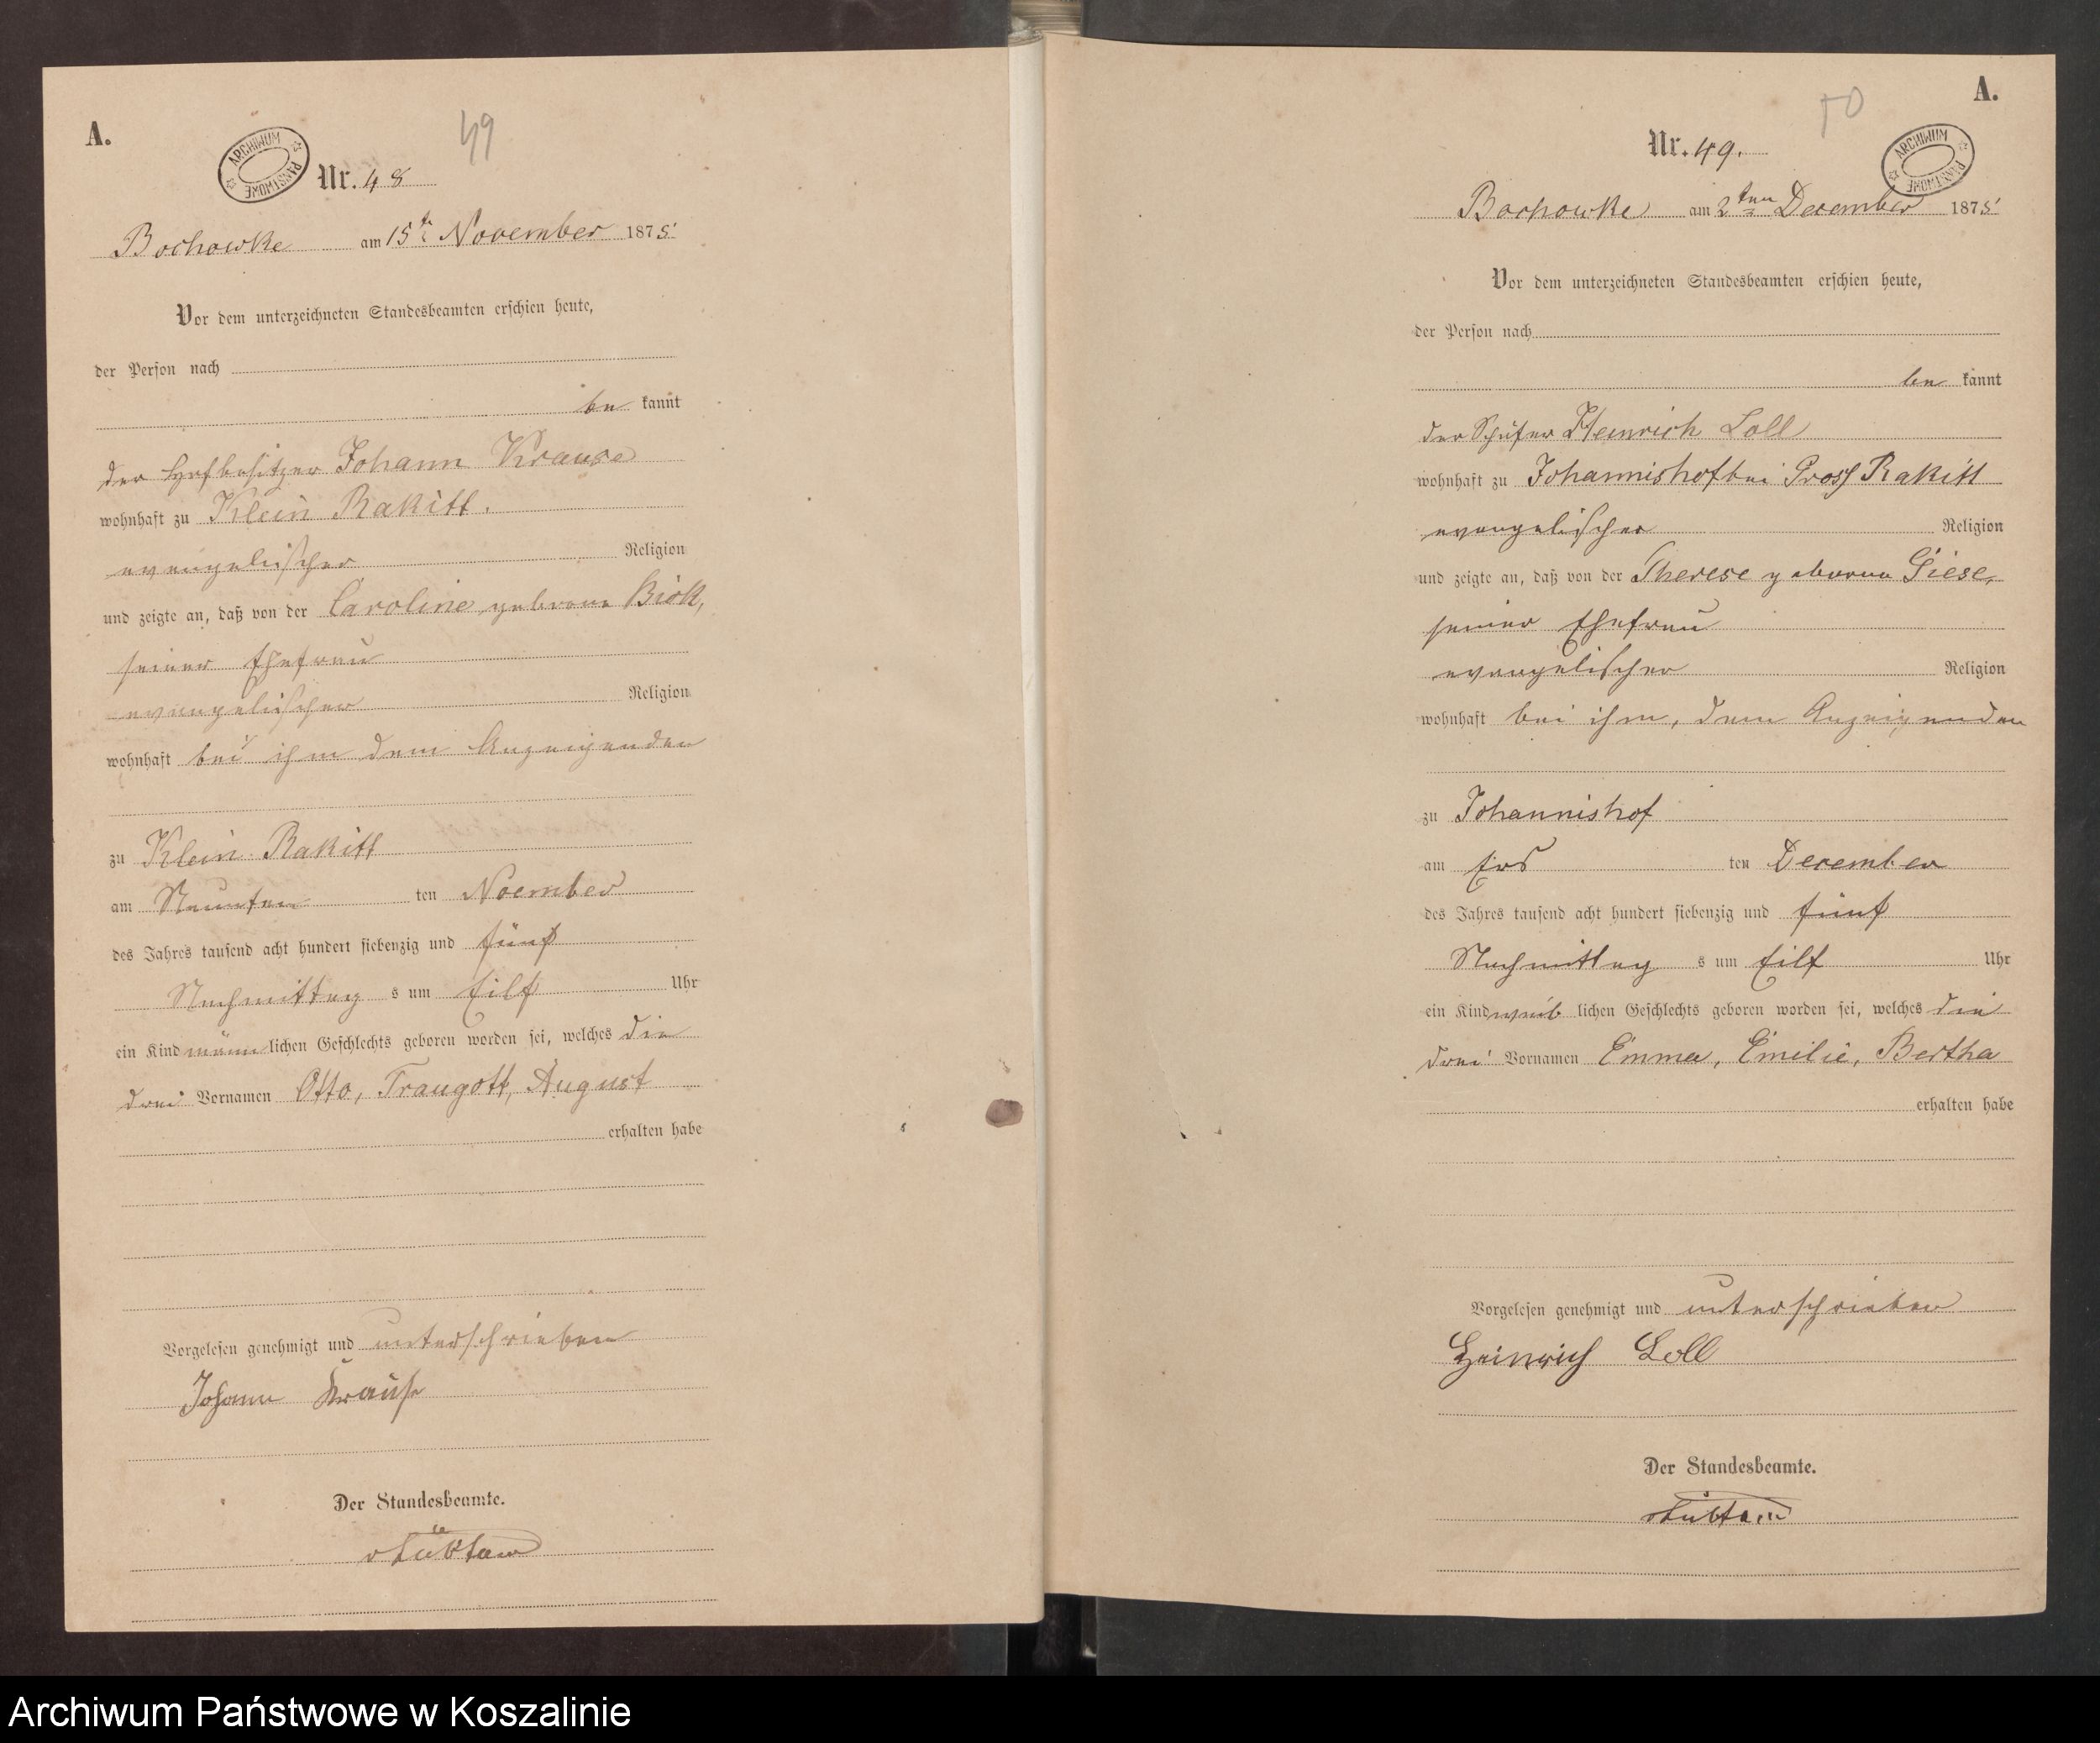 A.
49
ARCHIWUM PAŃSTWOWE
Nr. 48
Bochowke am 15te November 1875.
Vor dem unterzeichneten Standesbeamten erschien heute,
der Person nach
be kannt
der Hofbesitzer Johann Krause
wohnhaft zu Klein Rakitt.
evangelischer Religion
und zeigte an, daß von der Caroline geborne Birk,
seiner Ehefrau
evangelischer Religion
wohnhaft bei ihm dem Anzeigenden
zu Klein Rakitt
am Neunten ten Noember
des Jahres tausend acht hundert siebenzig und fünf
Nachmittag s um Eilf Uhr
ein Kind männ lichen Geschlechts geboren worden sei, welches die
drei Vornamen Otto, Traugott, August
erhalten habe
Vorgelesen genehmigt und unterschrieben
Johann Krause
Der Standesbeamte.
A.
50
Nr. 49.
ARCHIWUM PAŃSTWOWE
Bochowke am 2ten December 1875.
Vor dem unterzeichneten Standesbeamten erschien heute,
der Person nach
be kannt
der Schäfer Heinrich Loll
wohnhaft zu Johannishof bei Gross Rakitt
evangelischer Religion
und zeigte an, daß von der Therese geborne Giese,
seiner Ehefrau
evangelischer Religion
wohnhaft bei ihm, dem Anzeigenden
zu Johannishof
am Ers ten December
des Jahres tausend acht hundert siebenzig und fünf
Nachmittag s um Eilf Uhr
ein Kind weib lichen Geschlechts geboren worden sei, welches die
drei Vornamen Emma, Emilie, Bertha
erhalten habe
Vorgelesen genehmigt und unterschrieben
Heinrich Loll
Der Standesbeamte.
Archiwum Państwowe w Koszalinie